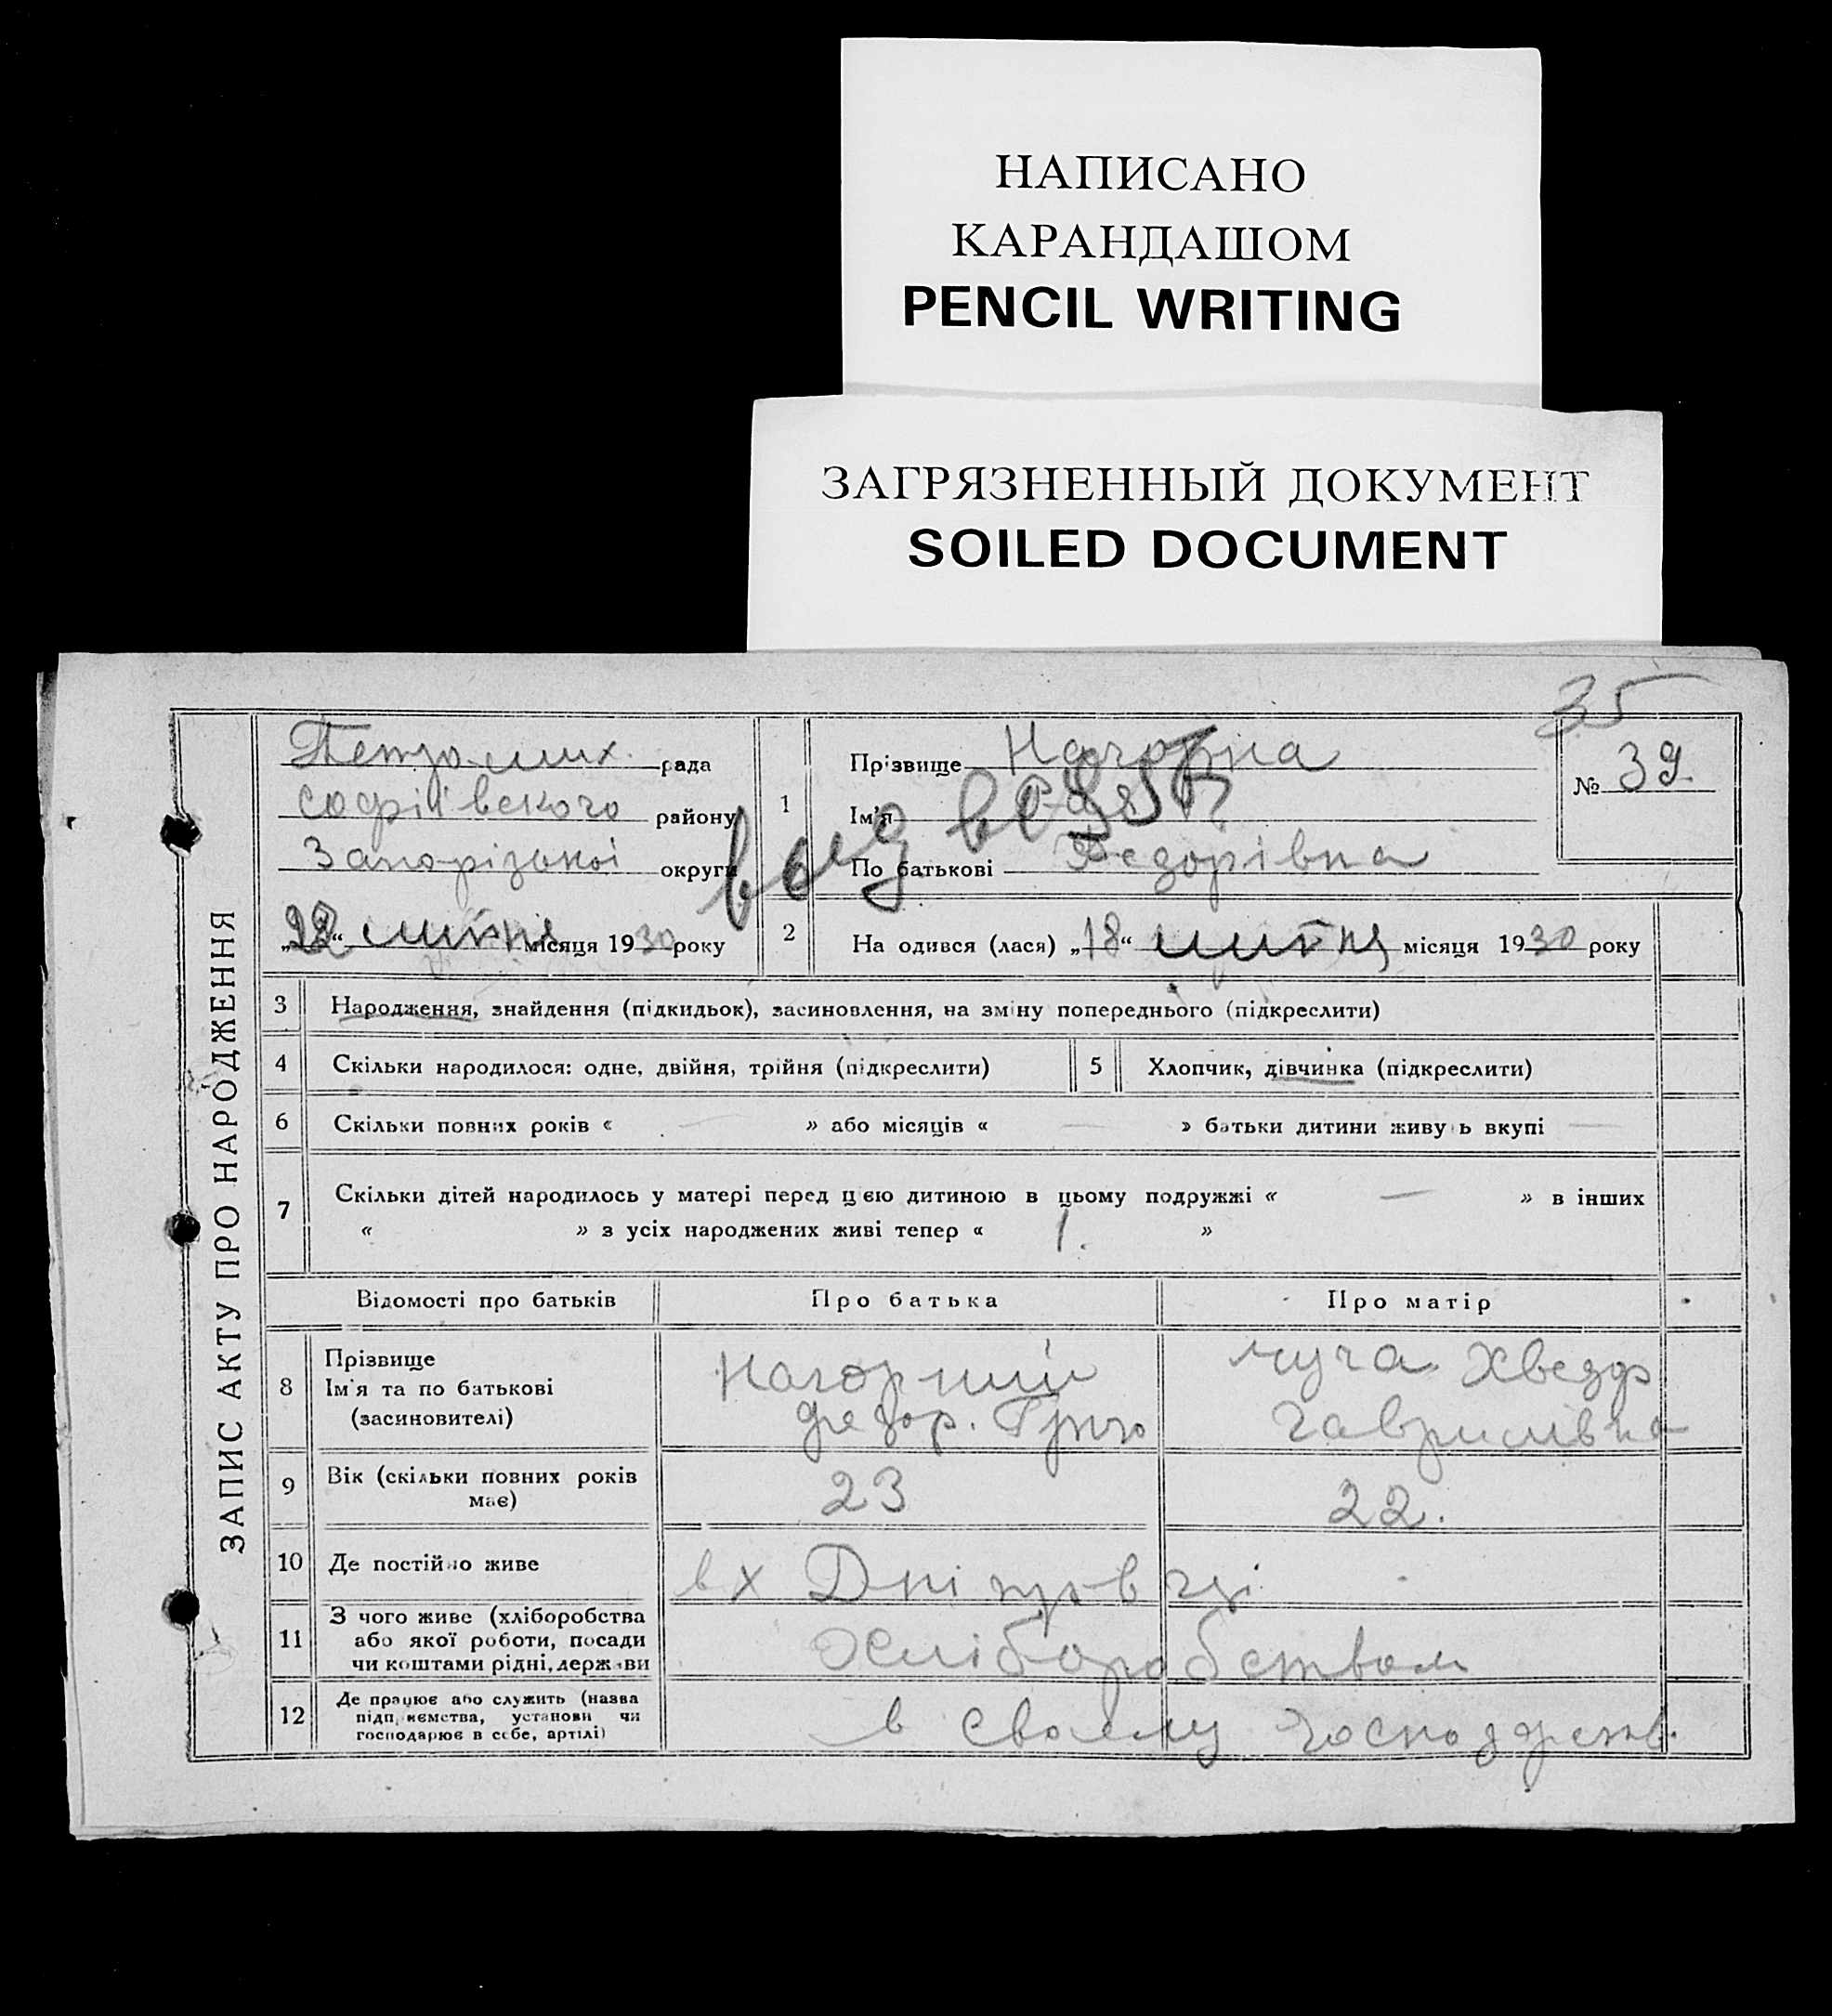 НАПИСАНО
КАРАНДАШОМ
PENCIL WRITING
ЗАГРЯЗНЕННЫЙ ДОКУМЕНТ
SOILED DOCUMENT
35
ЗАПИС АКТУ ПРО НАРОДЖЕННЯ
рада
Софіївского району
Запорізької округи
„22“ липня місяця 1930 року
1
Прізвище Нагорна
Ім'я
По батькові Федорівна
№ 39.
2 На одився (лася) „18“ липня місяця 1930 року
3 Народження, знайдення (підкидьок), засиновлення, на зміну попереднього (підкреслити)
4 Скільки народилося: одне, двійня, трійня (підкреслити) 5 Хлопчик, дівчинка (підкреслити)
6 Скільки повних років « — » або місяців « — » батьки дитини живу ь вкупі —
7 Скільки дітей народилось у матері перед цією дитиною в цьому подружжі « — » в інших
« » з усіх народжених живі тепер « 1. »
Відомості про батьків Про батька Про матір
8 Прізвище
Ім'я та по батькові
(засиновителі)
Нагорний
Федор. Григо
Хведор
Гаврилівна
9 Вік (скільки повних років
має)
23 22.
10 Де постійно живе в х Дніпровці
11 З чого живе (хліборобства
або якої роботи, посади
чи коштами рідні, держави
Хліборобством
12 Де працює або служить (назва
підприємства, установи чи
господарює в себе, артілі)
в своєму господарств.